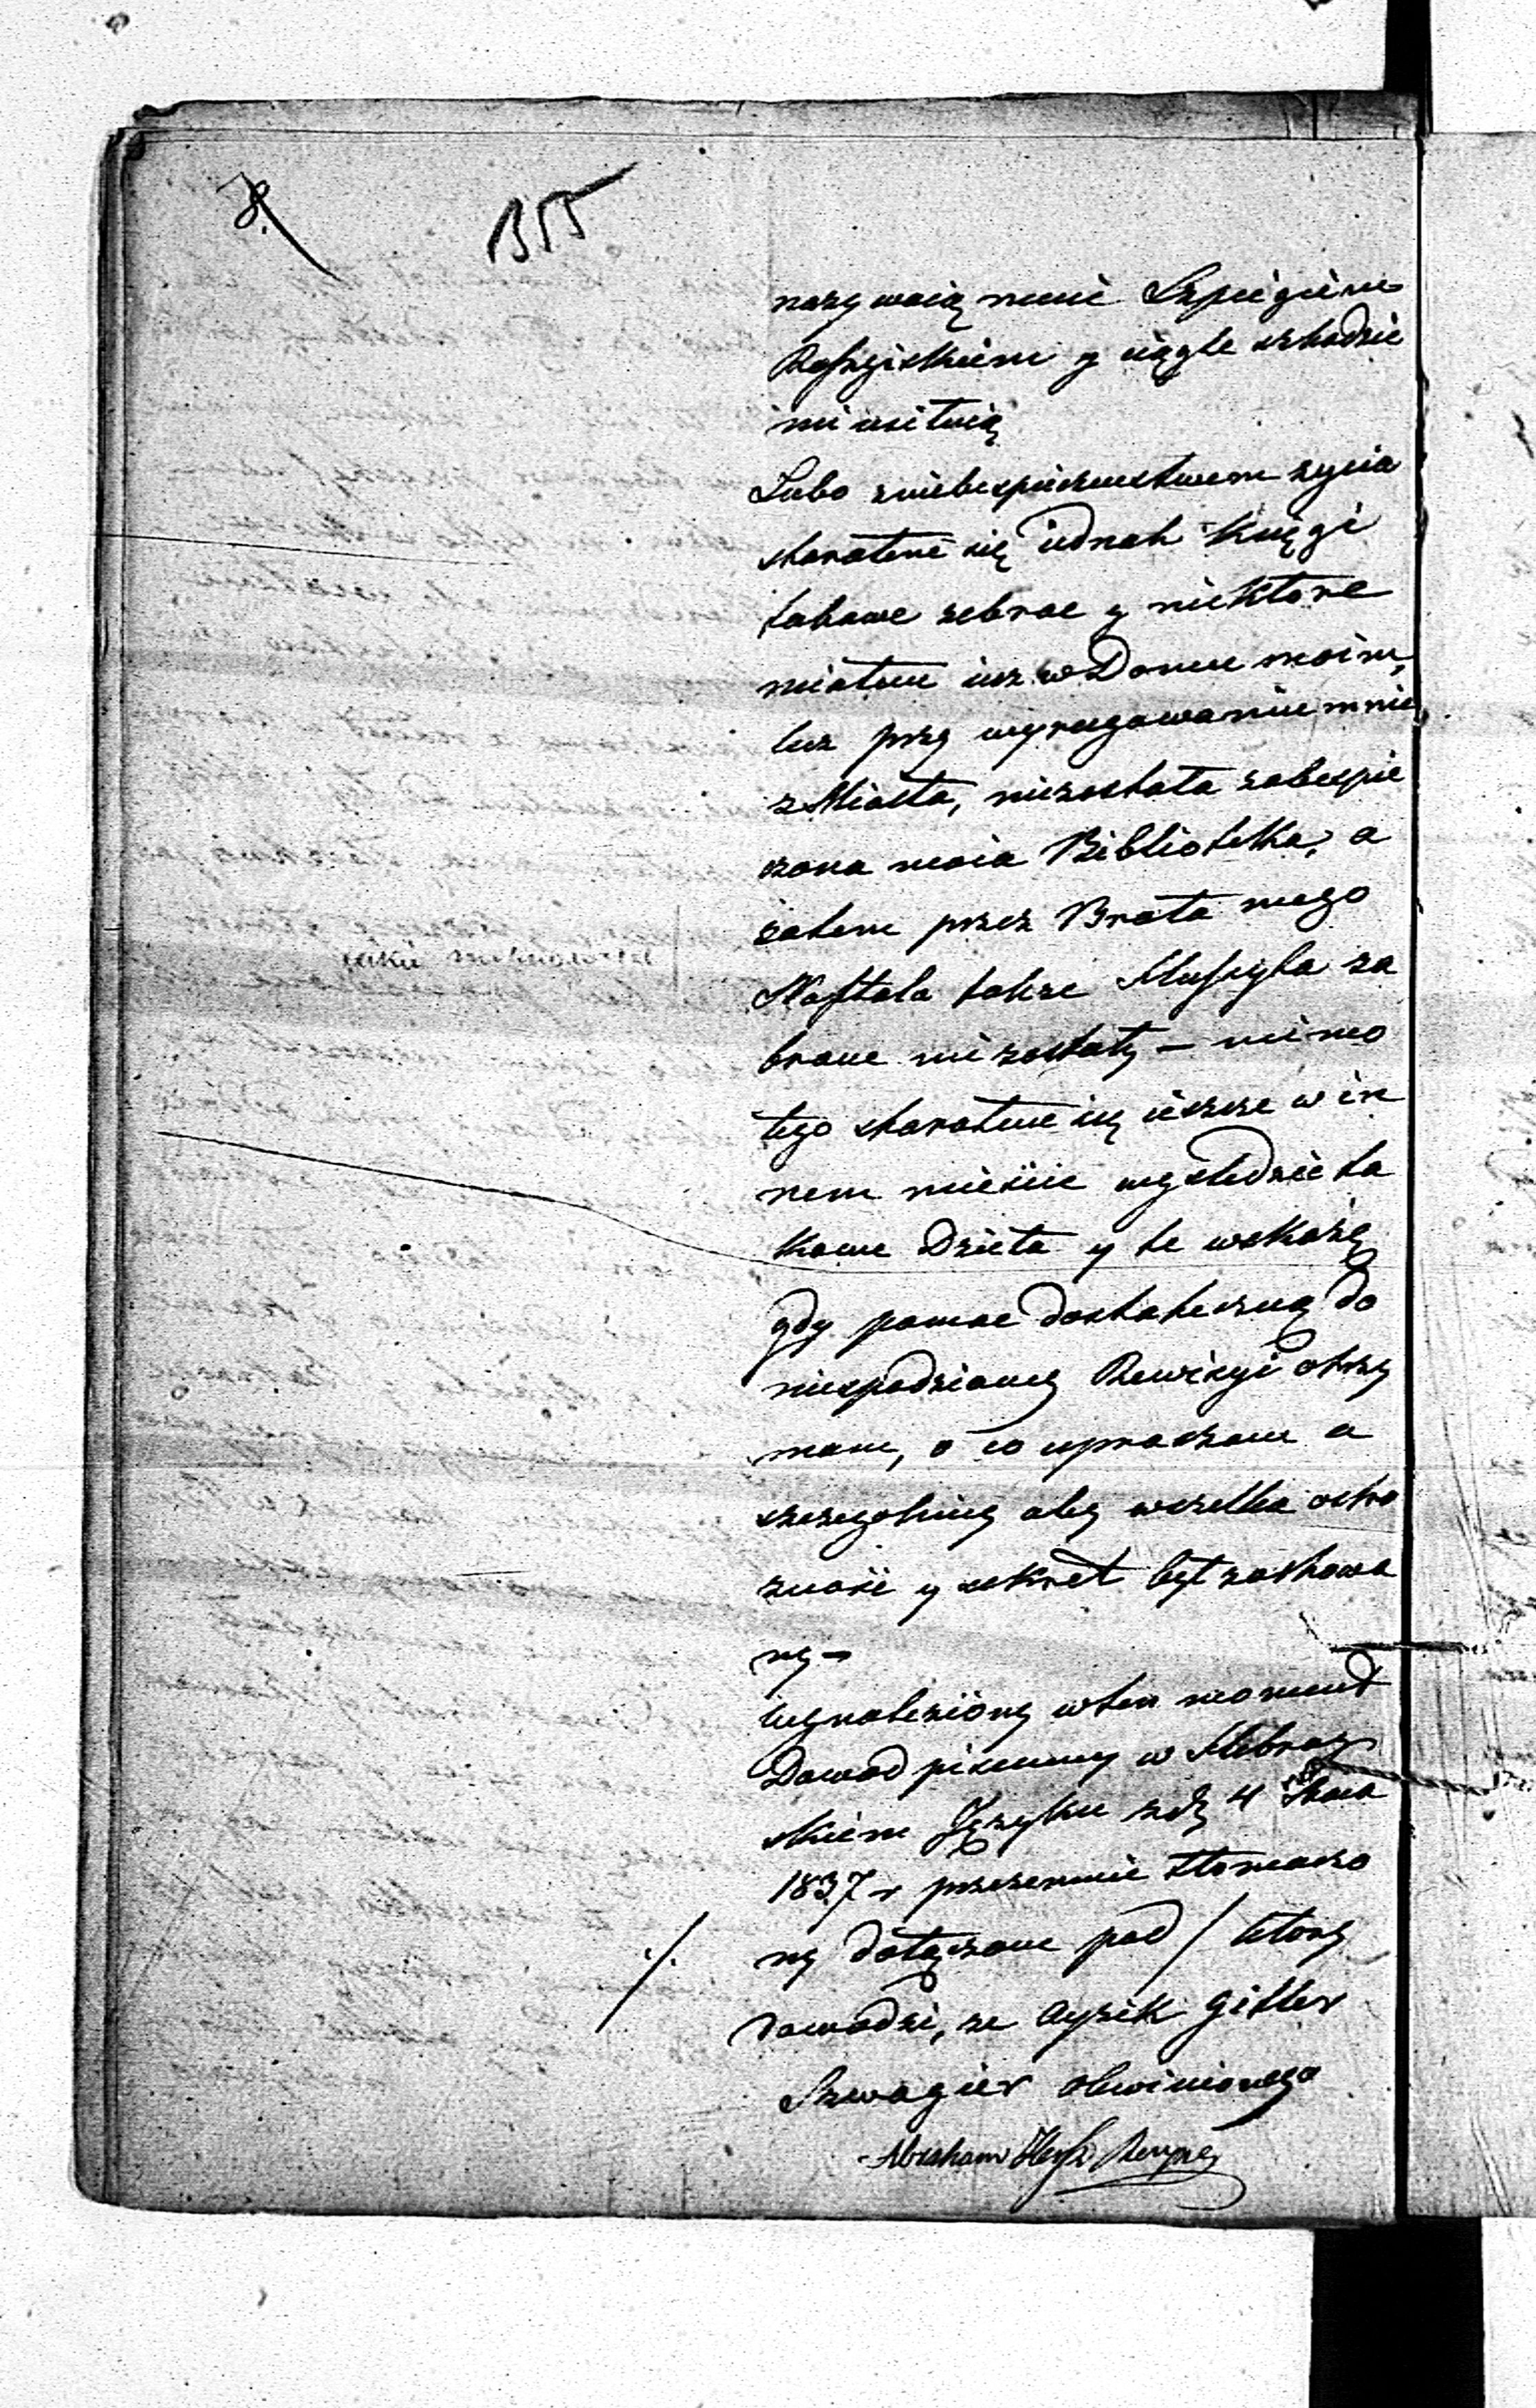 8.
155
nazywaią mnie Szpiegiem
Rossyiskiem y ciągle szkodzic
mi usiłuią
Lubo zniebespieczenstwem zycia
starałem się iednak Księgi
takowe zebrac y niektore
miałem iusz w Domu moim,
lecz przy wyrugowaniu mnie
z Miasta, niezostała zabespie
czona moia Biblioteka, a
zatem przez Brata mego
Naftala takze Missyda za
brane mi zostały — mimo
tego starałem się ieszcze w in
nem mieście wysledzic ta
kowe Dzieła y te wskażę
gdy pomoc dostateczną do
niespodzianey Rewizyi otrzy
mam, o co upraszam a
szczegolniey aby wszelka ostro
zność y sekret był zachowa
ny —
wynaleziony w ten moment
Dowod pismienny w Hebray
skiem Języku z dy 4
1837 r przezemnie tłomaczo
ny dołączam pod / ktory
dowodzi, ze Ayzik Gitler
Szwagier obwinionego
Abraham Hersz
./.